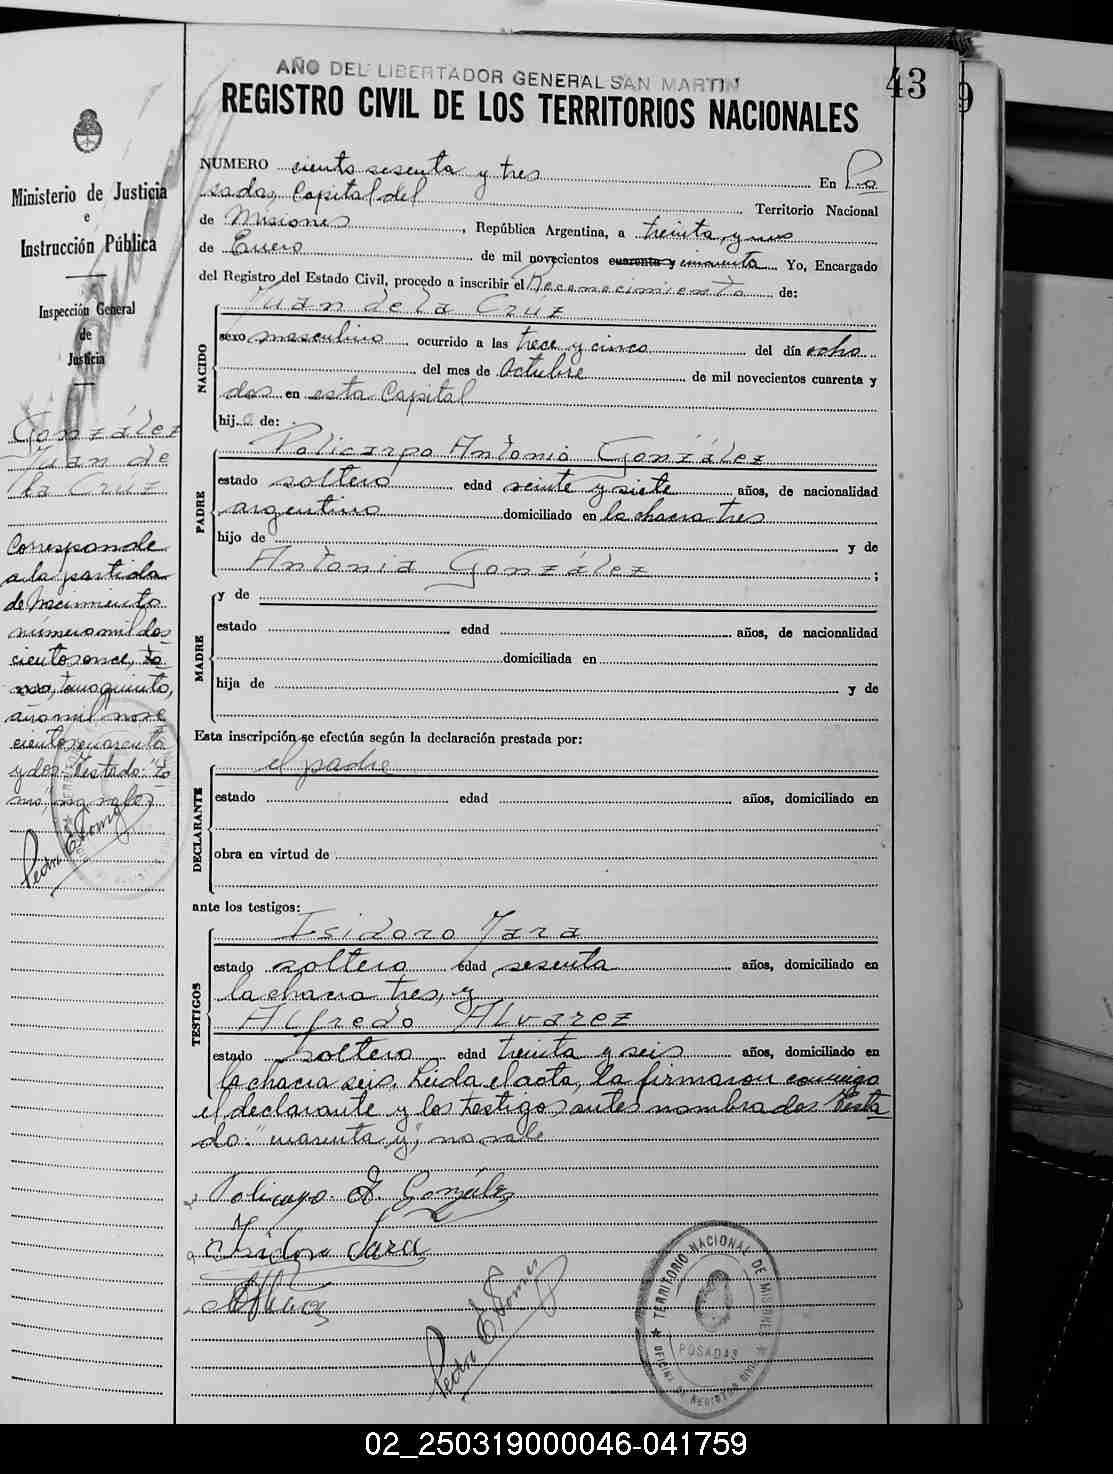 AÑO DEL LIBERTADOR GENERAL SAN MARTIN
REGISTRO CIVIL DE LOS TERRITORIOS NACIONALES
43
9
Ministerio de Justicia
e
Instrucción Pública
Inspección General
de
Justicia
González
Juan de
la Cruz
Corresponde
a la partida
de Nacimiento
número mil dos
cientos once, to
mo, tomo quinto,
año mil nove
cientos cuarenta
y dos Testado: "to
mo", no vale
Pedro E. Gomez
NUMERO ciento sesenta y tres En Po
sadas, Capital del Territorio Nacional
de Misiones, República Argentina, a treinta y uno
de Enero de mil novecientos cuarenta y cincuenta Yo, Encargado
del Registro del Estado Civil, procedo a inscribir el Reconocimiento de:
NACIDO
Juan de la Cruz
sexo masculino, ocurrido a las trece y cinco del día ocho
del mes de Octubre de mil novecientos cuarenta y
dos en esta Capital
hijo de:
PADRE
Policarpo Antonio González
estado soltero edad veinte y siete años, de nacionalidad
argentino domiciliado en la chacra tres
hijo de y de
Antonia González ;
MADRE
y de
estado edad años, de nacionalidad
domiciliada en
hija de y de
Esta inscripción se efectúa según la declaración prestada por:
DECLARANTE
el padre
estado edad años, domiciliado en
obra en virtud de
ante los testigos:
TESTIGOS
Isidoro Jara
estado soltero edad sesenta años, domiciliado en
la chacra tres, y
Alfredo Alvarez
estado soltero edad treinta y seis años, domiciliado en
la chacra seis. Leída el acta, la firmaron conmigo
el declarante y los testigos antes nombrados Testa
do: "cuarenta y", no vale
Policarpo A. González
Isidoro Jara
Pedro E. Gomez
TERRITORIO NACIONAL DE MISIONES
POSADAS
OFICINA DE REGISTRO CIVIL
02_250319000046-041759